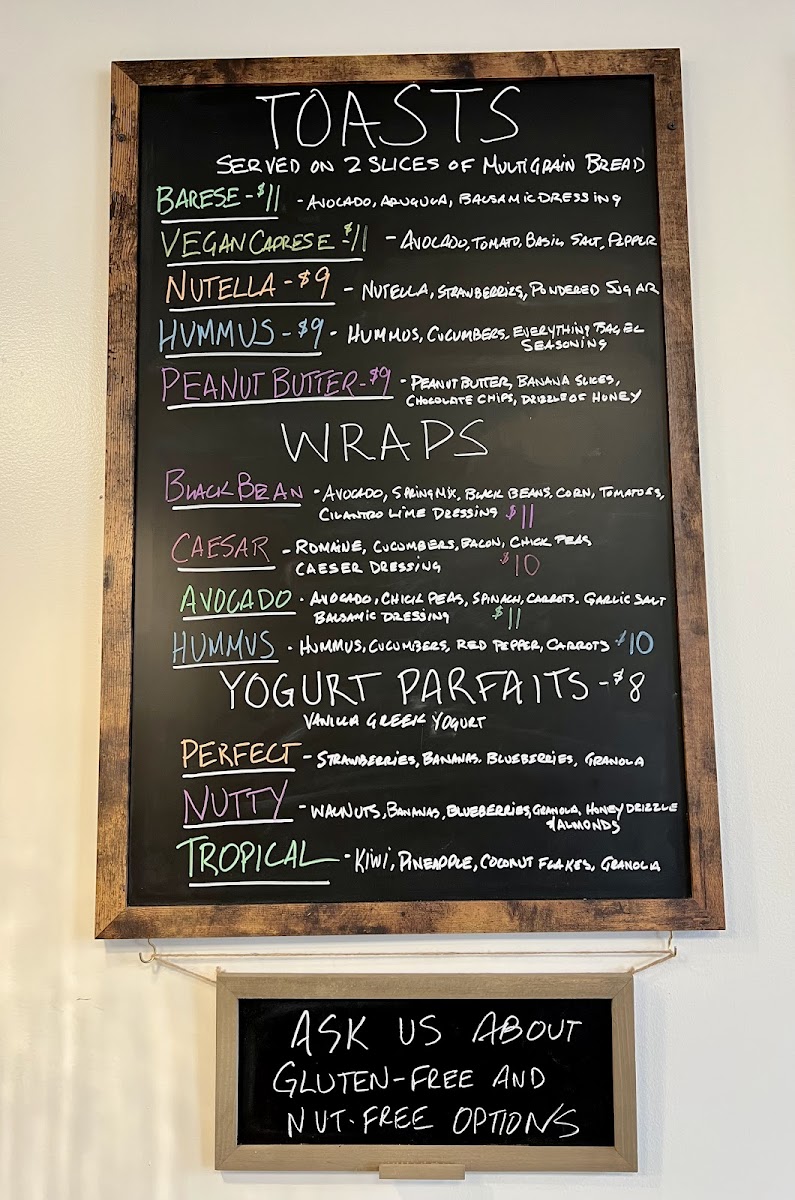 TOASTS
SERVED ON 2 SLICES OF MULTIGRAIN BREAD
BARESE - $11 - AVOCADO, ARUGULA, BALSAMIC DRESSING
VEGAN CAPRESE - $11 - AVOCADO, TOMATO, BASIL, SALT, PEPPER
NUTELLA - $9 - NUTELLA, STRAWBERRIES, POWDERED SUGAR
HUMMUS - $9 - HUMMUS, CUCUMBERS, EVERYTHING BAGEL
SEASONING
PEANUT BUTTER - $9 - PEANUT BUTTER, BANANA SLICES,
CHOCOLATE CHIPS, DRIZZLE OF HONEY
WRAPS
BLACK BEAN - AVOCADO, SPRING MIX, BLACK BEANS, CORN, TOMATOES,
CILANTRO LIME DRESSING $11
CAESAR - ROMAINE, CUCUMBERS, BACON, CHICK PEAS
CAESER DRESSING $10
AVOCADO - AVOCADO, CHICK PEAS, SPINACH, CARROTS. GARLIC SALT
BALSAMIC DRESSING $11
HUMMUS - HUMMUS, CUCUMBERS, RED PEPPER, CARROTS $10
YOGURT PARFAITS - $8
VANILLA GREEK YOGURT
PERFECT - STRAWBERRIES, BANANAS. BLUEBERRIES, GRANOLA
NUTTY - WALNUTS, BANANAS, BLUEBERRIES, GRANOLA, HONEY DRIZZLE
& ALMONDS
TROPICAL - KIWI, PINEAPPLE, COCONUT FLAKES, GRANOLA
ASK US ABOUT
GLUTEN-FREE AND
NUT-FREE OPTIONS